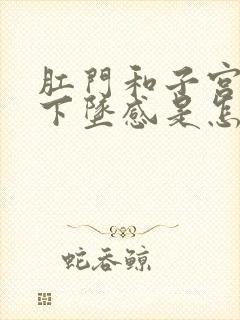 肛門和子宮
下墜感是怎
蛇吞鲸